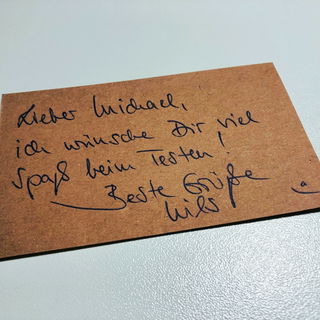 Lieber Michael,
ich wünsche Dir viel
Spaß beim Testen!
Beste Grüße
Nils